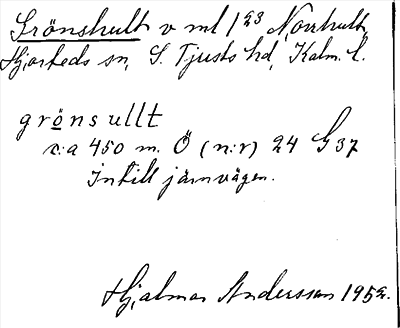 Grönshult v ml 1²³ Norrhult,
Hjorteds sn, S. Tjusts hd, Kalm. l.
grönsullt
c:a 450 m. Ö (n:r) 24 G 37
Intill järnvägen.
Hjalmar Andersson 1952.